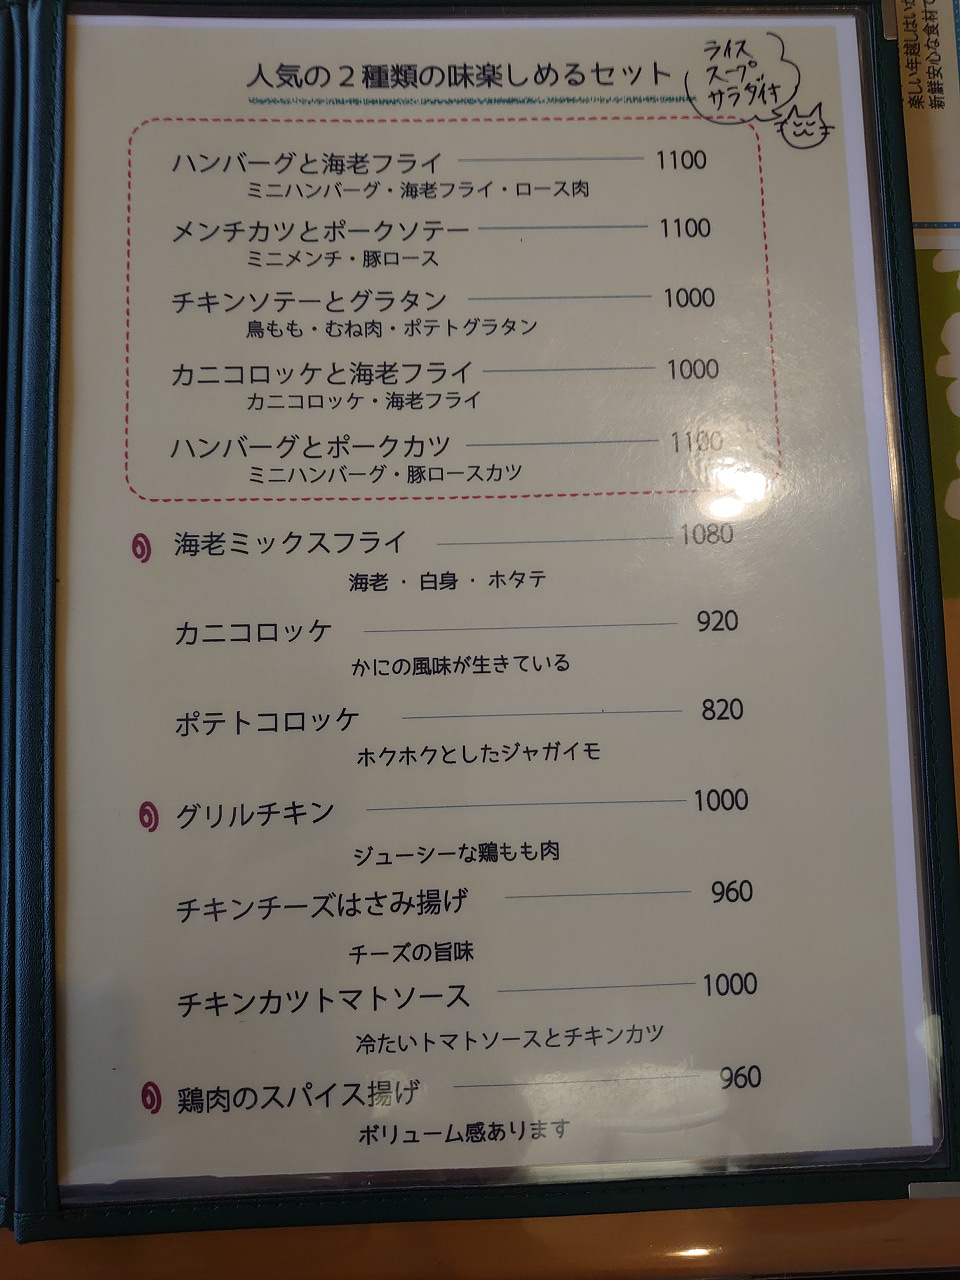 人気の2種類の味楽しめるセット
ライス
スープ
サラダ付
ハンバーグと海老フライ 1100
ミニハンバーグ・海老フライ・ロース肉
メンチカツとポークソテー 1100
ミニメンチ・豚ロース
チキンソテーとグラタン 1000
鳥もも・むね肉・ポテトグラタン
カニコロッケと海老フライ 1000
カニコロッケ・海老フライ
ハンバーグとポークカツ 1100
ミニハンバーグ・豚ロースカツ
海老ミックスフライ 1080
海老・白身・ホタテ
カニコロッケ 920
かにの風味が生きている
ポテトコロッケ 820
ホクホクとしたジャガイモ
グリルチキン 1000
ジューシーな鶏もも肉
チキンチーズはさみ揚げ 960
チーズの旨味
チキンカツトマトソース 1000
冷たいトマトソースとチキンカツ
鶏肉のスパイス揚げ 960
ボリューム感あります
楽しい年越しはいか
新鮮安心な食材で